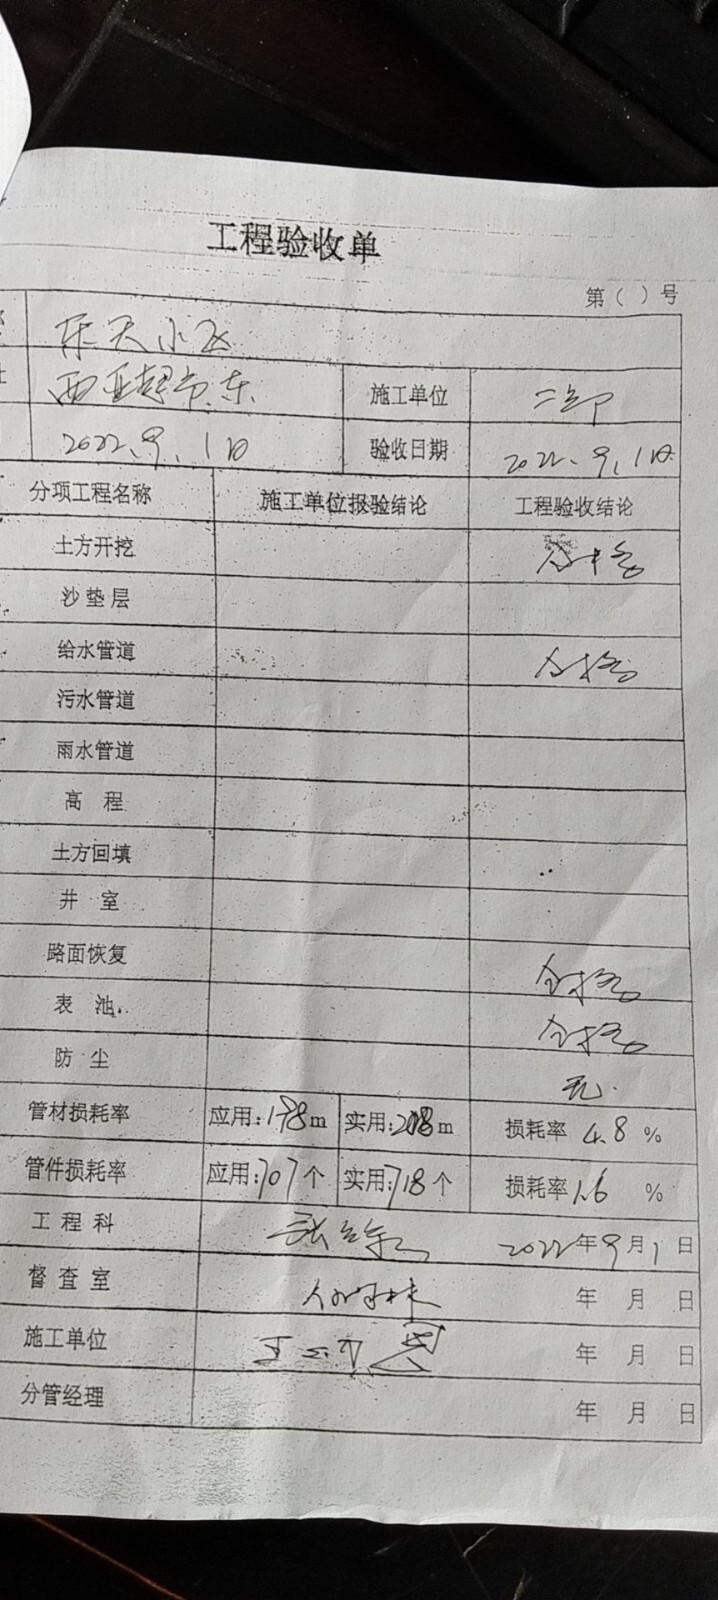 工程验收单
第（ ）号
乐天小区
西亚超市东 施工单位 二部
2022.9.1日 验收日期 2022.9.1日
分项工程名称 施工单位报验结论 工程验收结论
土方开挖 合格
沙垫层
给水管道 合格
污水管道
雨水管道
高 程
土方回填
井 室
路面恢复 合格
表 池
防 尘 无.
管材损耗率 应用: m 实用: m 损耗率 4.8 %
管件损耗率 应用:707个 实用:718个 损耗率 1.6 %
工 程 科 2022年9月1日
督 查 室 年 月 日
施工单位 年 月 日
分管经理 年 月 日